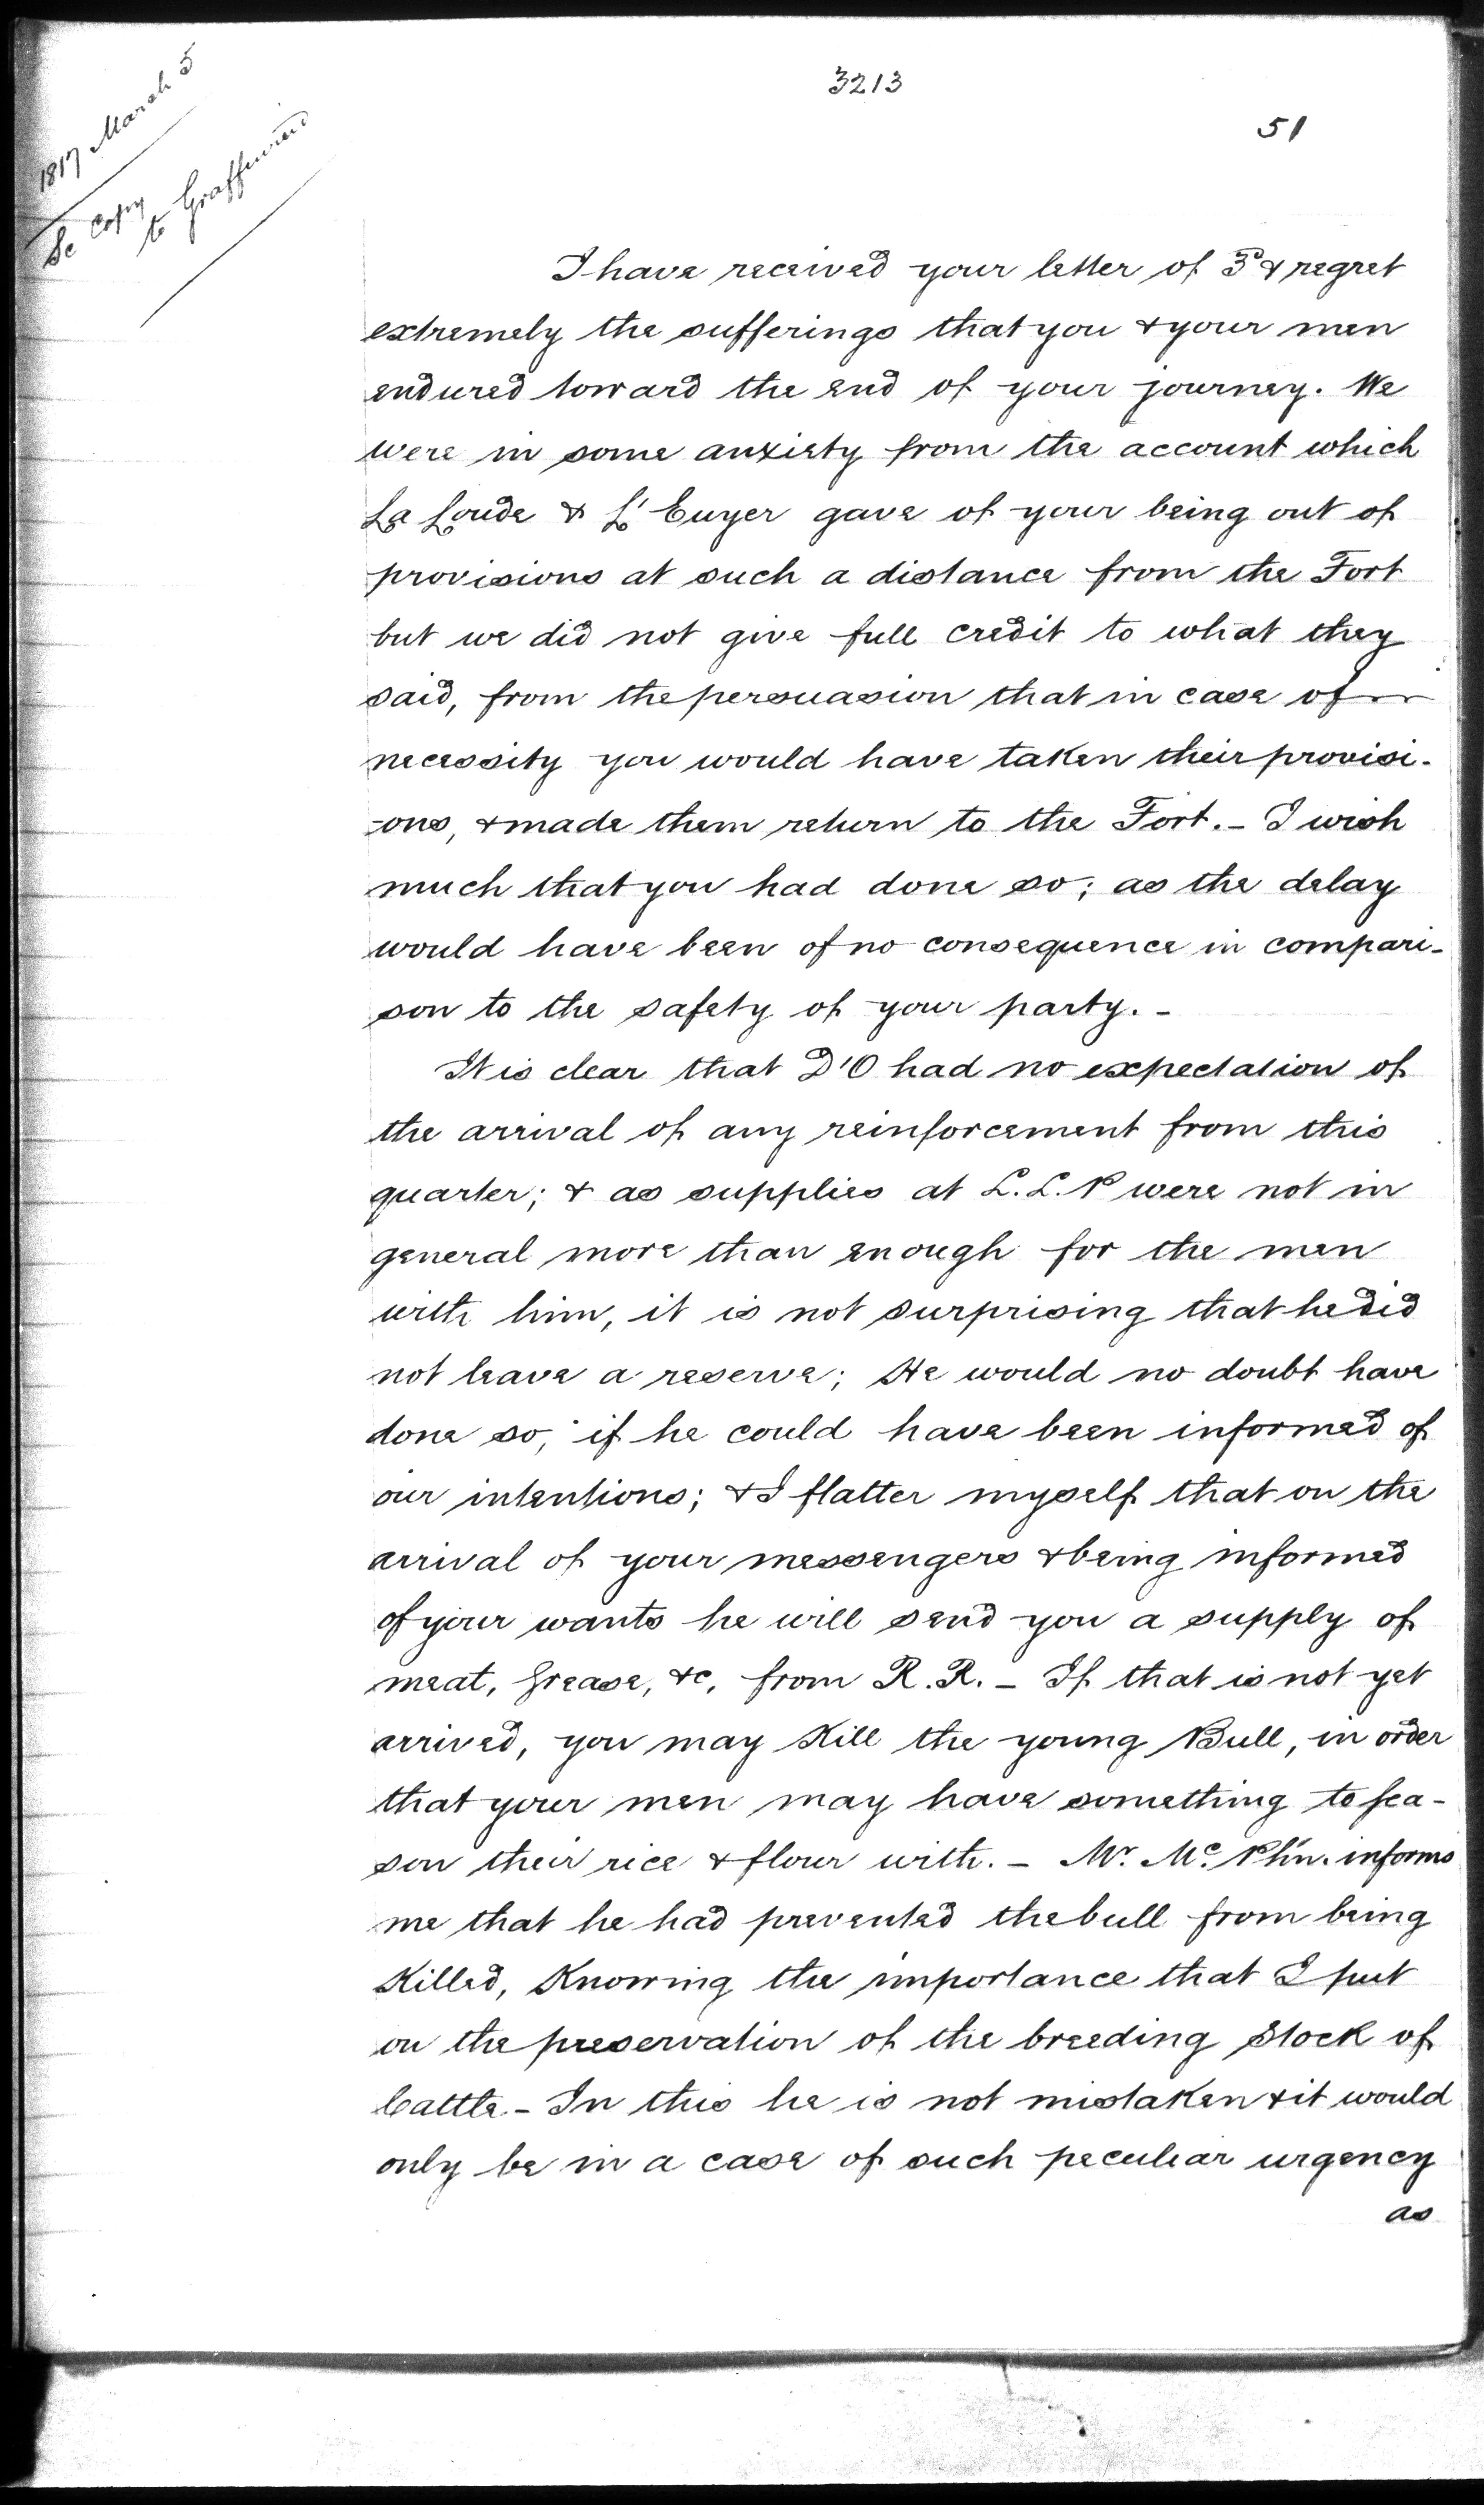 3213
51
1817 March 5
Se Copy
to Graffenried
I have received your letter of 3d & regret
extremely the sufferings that you & your men
endured toward the end of your journey. We
were in some anxiety from the account which
La Loude & L'Euyer gave of your being out of
provisions at such a distance from the Fort
but we did not give full credit to what they
said, from the persuasion that in case of
necessity you would have taken their provisi-
-ons, & made them return to the Fort. - I wish
much that you had done so; as the delay
would have been of no consequence in compari-
son to the safety of your party. -
It is clear that D'O had no expectation of
the arrival of any reinforcement from this
quarter; & as supplies at L. L. P were not in
general more than enough for the men
with him, it is not surprising that he did
not leave a reserve; He would no doubt have
done so, if he could have been informed of
our intentions; & I flatter myself that on the
arrival of your messengers & being informed
of your wants he will send you a supply of
meat, Grease, &c, from R. R. - If that is not yet
arrived, you may Kill the young Bull, in order
that your men may have something to sea-
son their rice & flour with. - Mr. Mc. Phn. informs
me that he had prevented the bull from being
Killed, Knowing the importance that I put
on the preservation of the breeding Stock of
Cattle. - In this he is not mistaken & it would
only be in a case of such peculiar urgency
as